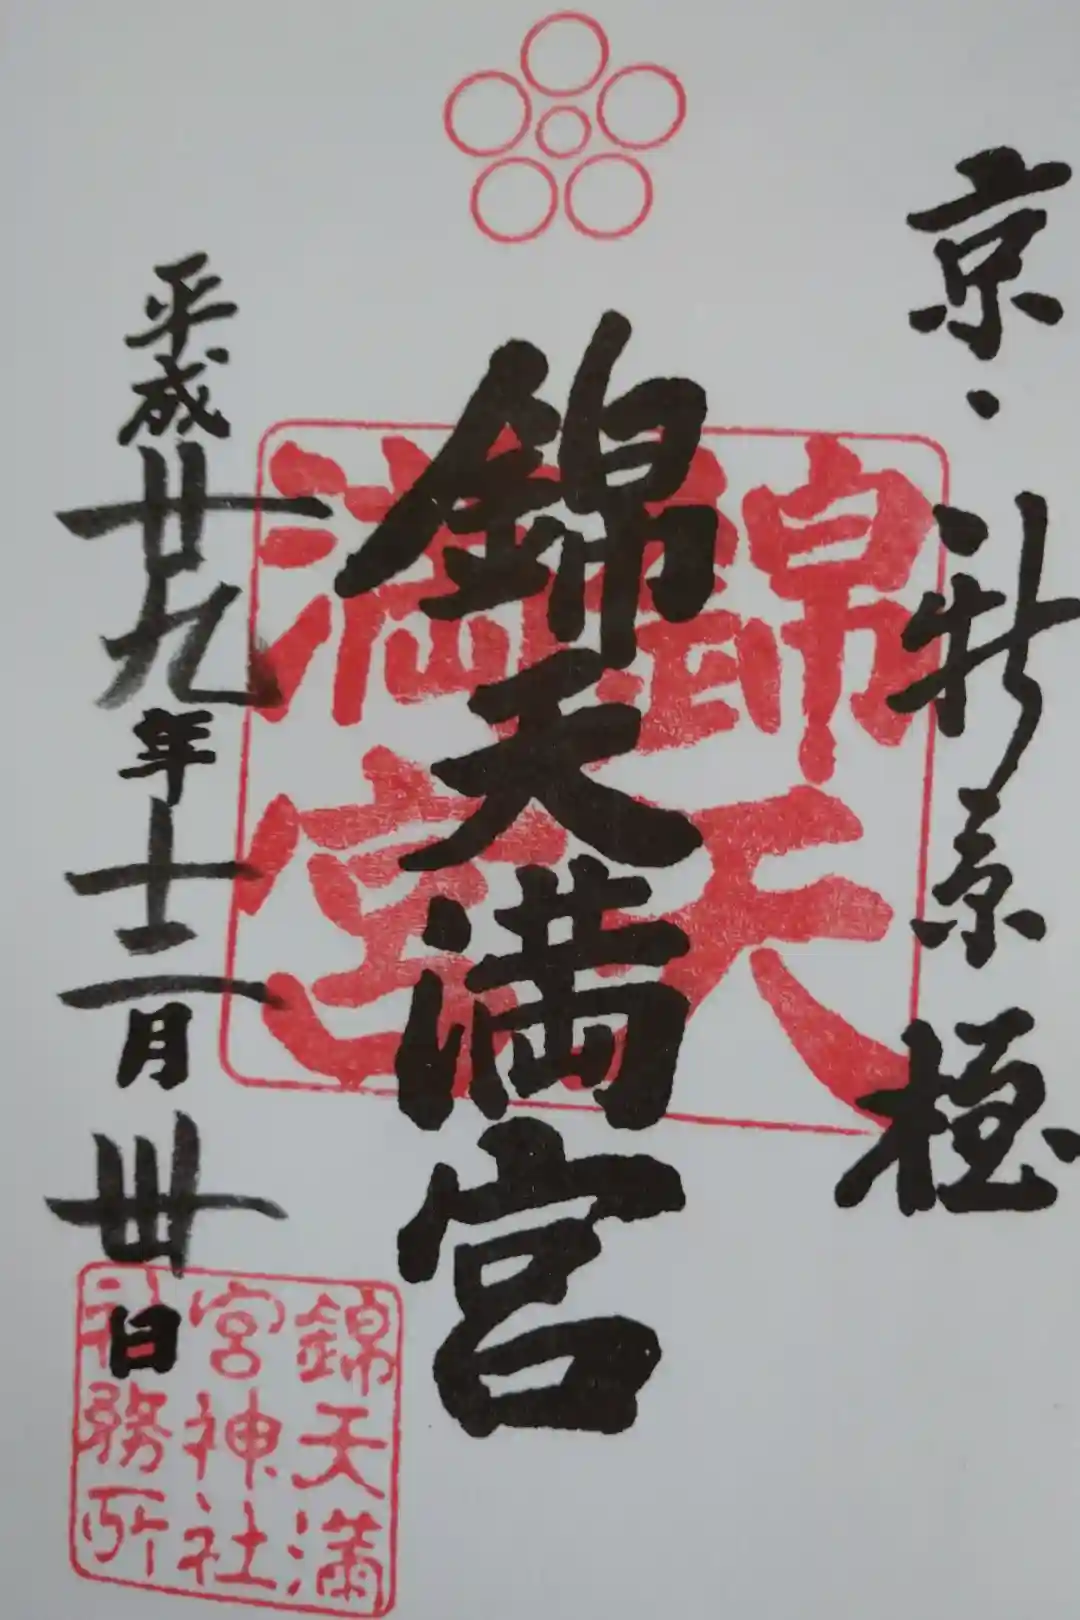 京・新京極
錦天満宮
錦天
満宮
平成廿九年十二月卅日
錦天満
宮神社
社務所